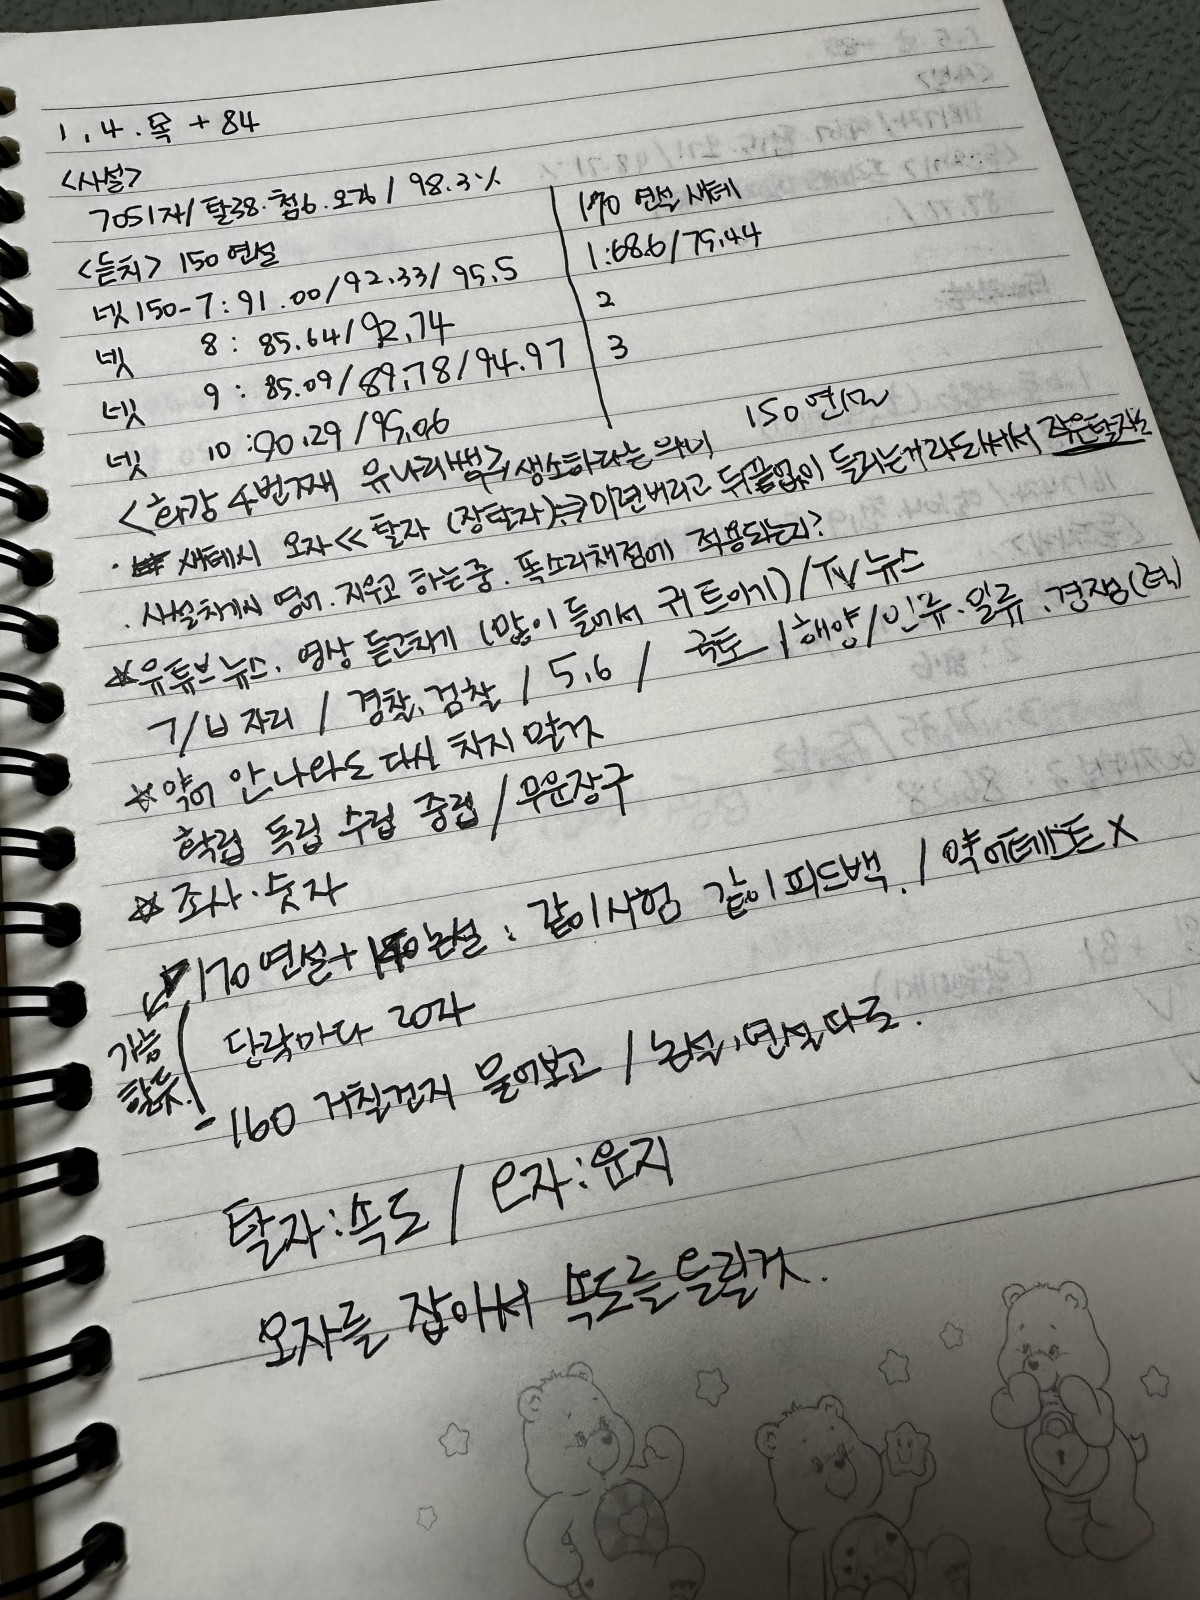 1.4.목 +84
<사설>
7051자/탈38.첨6.오76/98.3%
<듣치> 150 연설
170 연설 새테
넷150-7: 91.00/92.33/95.5
1:68.6/75.44
넷 8: 85.64/92.74
2
넷 9: 85.09/89.78/94.97
3
넷 10:90.29/95.06
<화강 4번째 유나리쌤> 생소하다는 의미 150연
새테시 오자<<탈자 (장탈자) 뒤끝없이 들리는거라도해서서 작은탈자로
. 사설치기시 영어. 지우고 하는중. 똑소리채점에 적용되는지?
☆유튜브 뉴스. 영상 듣고치기 (많이 들어서 귀 트이기)/TV 뉴스
ㄱ/ㅂ 자리 / 경찰.검찰 / 5,6 / 국토 / 해양/인류.일류.경쟁(력)
☆약어 안나와도 다시 치지 말것
확립 독립 수립 중립/무운장구
☆조사.숫자
170연설+논설: 같이시험 같이피드백. / 약어테스트X
가능한듯.
단락마다 20자
-160 거칠건지 물어보고 / 논설.연설따로.
탈자:속도 / 오자:운지
오자를 잡아서 속도를 올릴것.